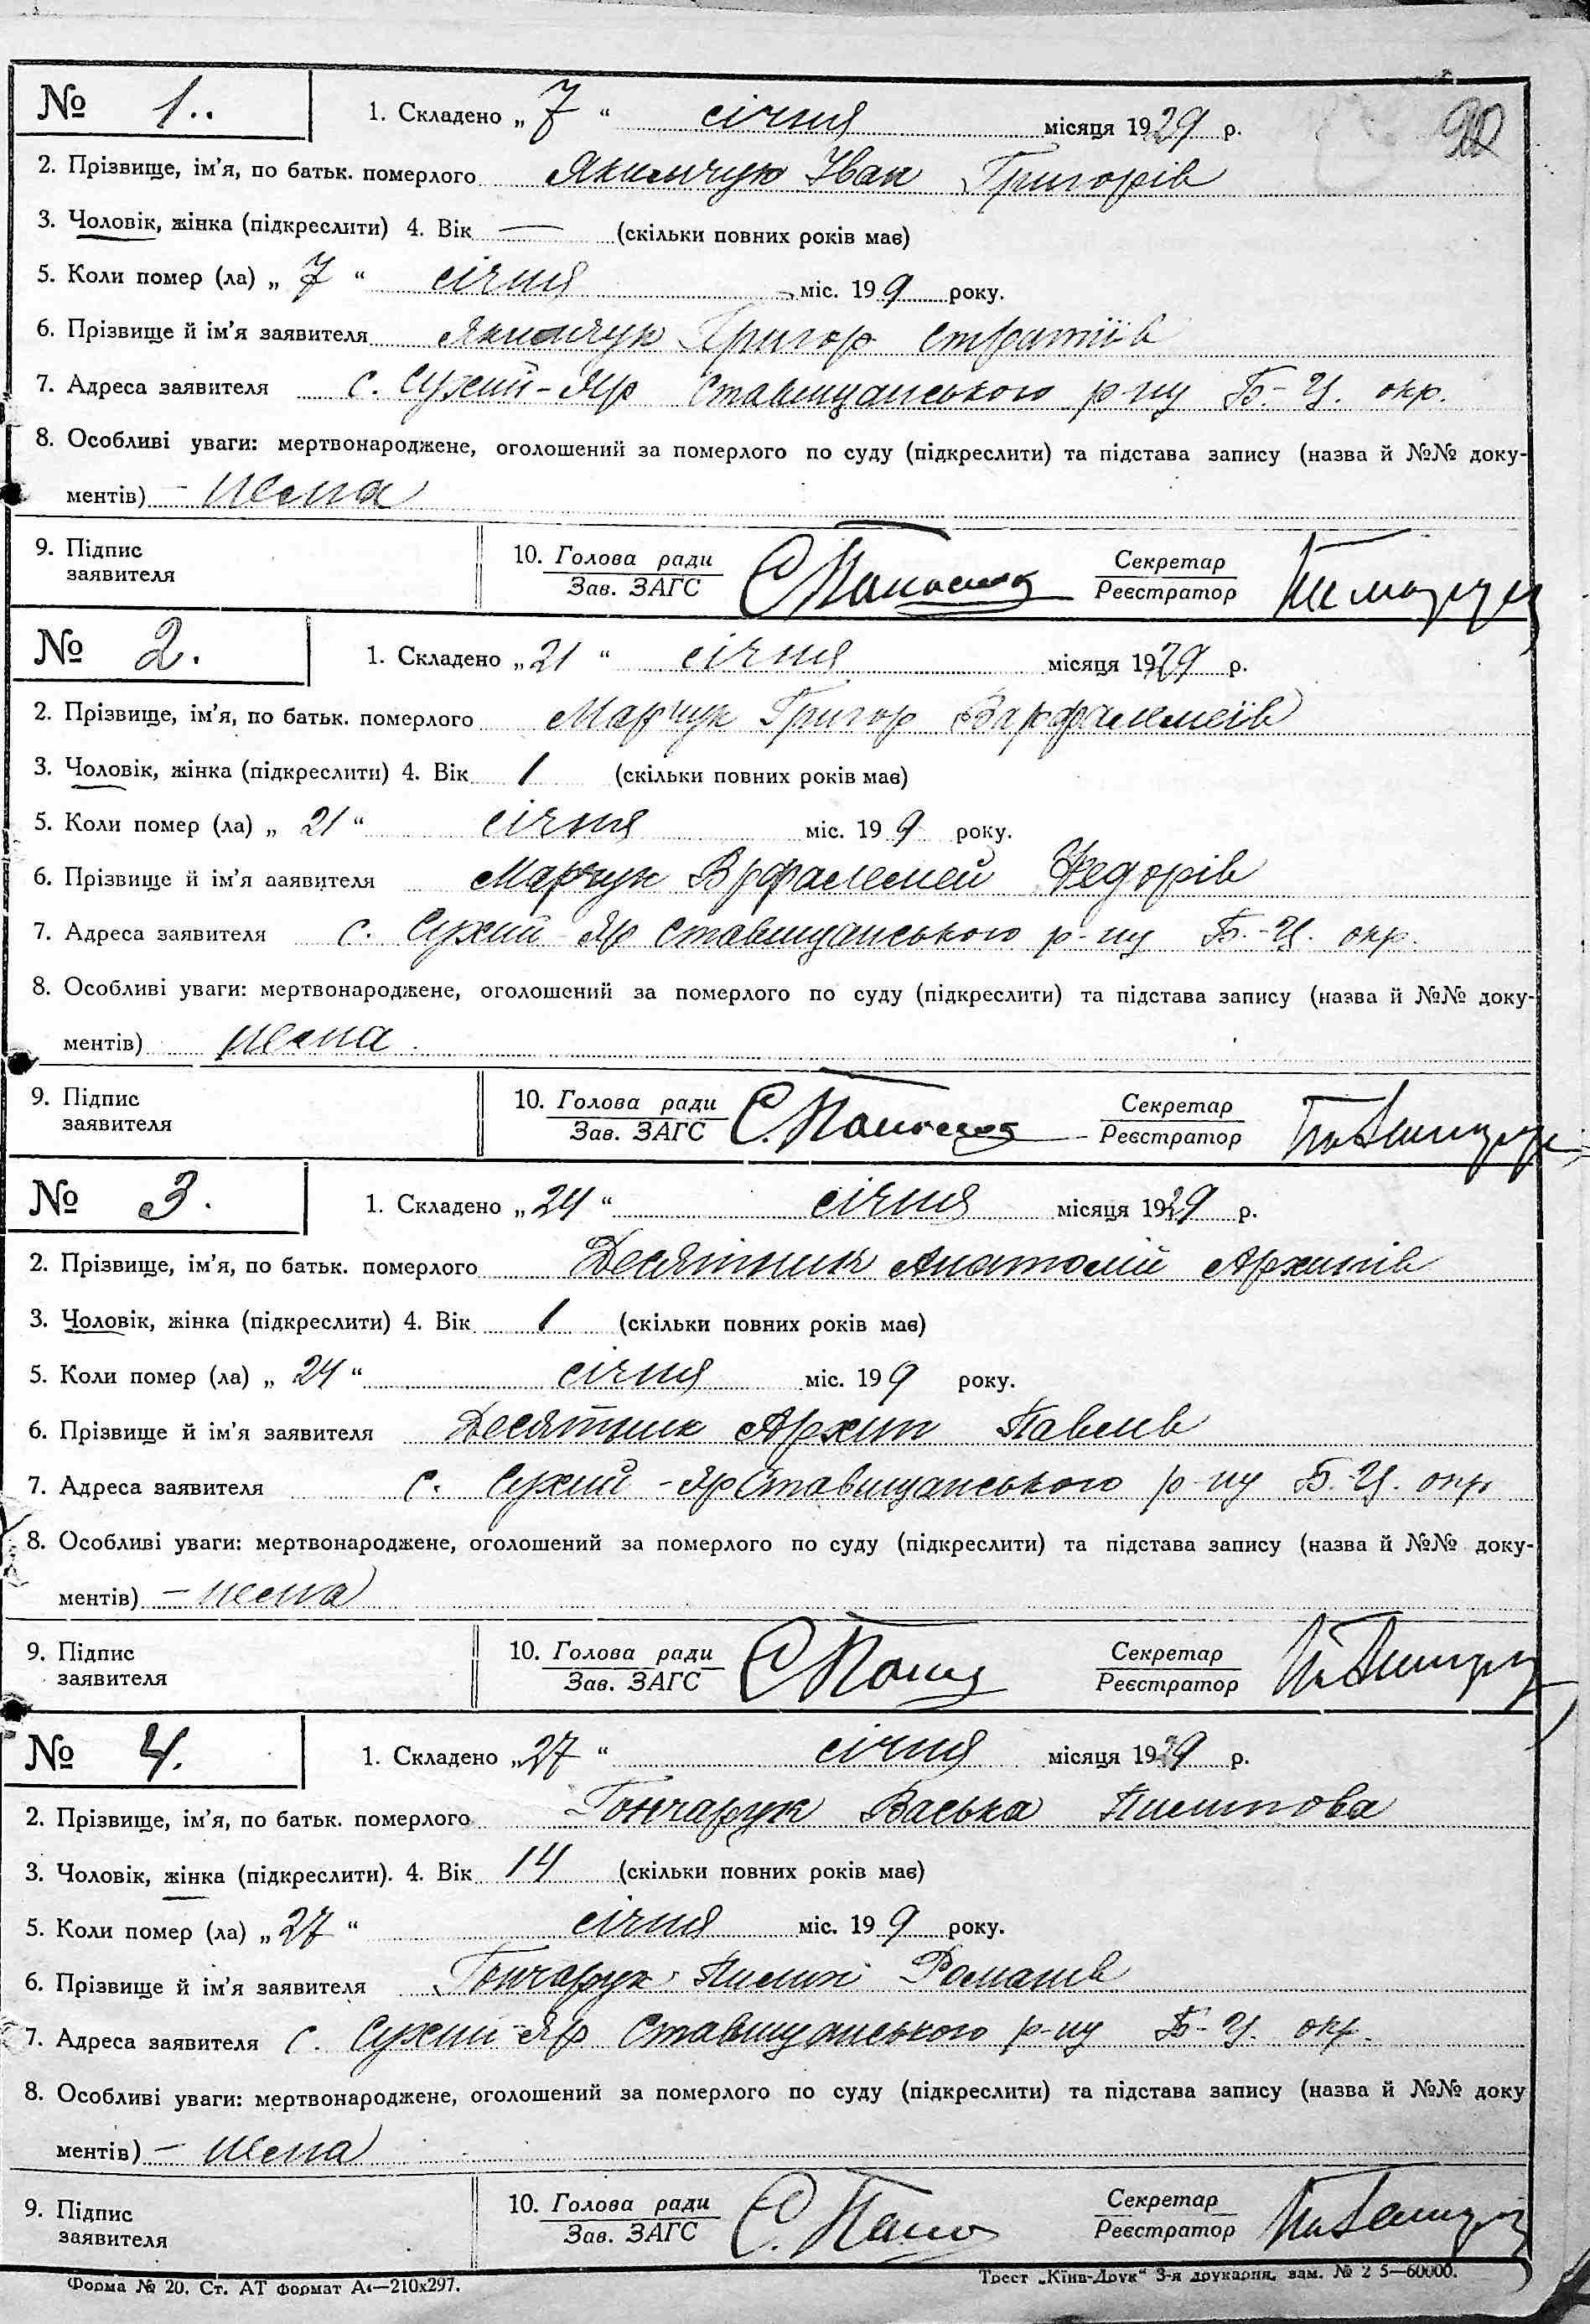 № 1.. 1. Складено „7“ січня місяця 1929 р. 90
2. Прізвище, ім'я, по батьк. померлого Якимчук Іван Григорів
3. Чоловік, жінка (підкреслити) 4. Вік — (скільки повних років має)
5. Коли помер (ла) „7“ січня міс. 199 року.
6. Прізвище й ім'я заявителя Якимчук Григор Стратіїв
7. Адреса заявителя с. Сухий-Яр Ставищанського р-ну Б.-Ц. окр.
8. Особливі уваги: мертвонароджене, оголошений за померлого по суду (підкреслити) та підстава запису (назва й №№ доку-
ментів) – нема
9. Підпис заявителя 10. Голова ради Зав. ЗАГС Секретар Реєстратор
№ 2. 1. Складено „21“ січня місяця 1929 р.
2. Прізвище, ім'я, по батьк. померлого Марчук Григор Варфаломеїв
3. Чоловік, жінка (підкреслити) 4. Вік 1 (скільки повних років має)
5. Коли помер (ла) „21“ січня міс. 199 року.
6. Прізвище й ім'я заявителя Марчук Врфаломей Федорів
7. Адреса заявителя с. Сухий Яр Ставищанського р-ну Б.-Ц. окр.
8. Особливі уваги: мертвонароджене, оголошений за померлого по суду (підкреслити) та підстава запису (назва й №№ доку-
ментів) нема.
9. Підпис заявителя 10. Голова ради Зав. ЗАГС Секретар Реєстратор
№ 3. 1. Складено „24“ січня місяця 1929 р.
2. Прізвище, ім'я, по батьк. померлого Десятник Анатолій Архипів
3. Чоловік, жінка (підкреслити) 4. Вік 1 (скільки повних років має)
5. Коли помер (ла) „24“ січня міс. 199 року.
6. Прізвище й ім'я заявителя Десятник Архип Павлів
7. Адреса заявителя с. Сухий-Яр Ставищанського р-ну Б.-Ц. окр
8. Особливі уваги: мертвонароджене, оголошений за померлого по суду (підкреслити) та підстава запису (назва й №№ доку-
ментів) – нема
9. Підпис заявителя 10. Голова ради Зав. ЗАГС Секретар Реєстратор
№ 4. 1. Складено „27“ січня місяця 1929 р.
2. Прізвище, ім'я, по батьк. померлого Гончарук Васька Пилипова
3. Чоловік, жінка (підкреслити). 4. Вік 14 (скільки повних років має)
5. Коли помер (ла) „27“ січня міс. 199 року.
6. Прізвище й ім'я заявителя Гончарук Пилип Романів
7. Адреса заявителя с. Сухий-Яр Ставищанського р-ну Б-Ц. окр.
8. Особливі уваги: мертвонароджене, оголошений за померлого по суду (підкреслити) та підстава запису (назва й №№ доку
ментів) – нема
9. Підпис заявителя 10. Голова ради Зав. ЗАГС Секретар Реєстратор
Форма № 20. Ст. АТ формат А4—210х297. Трест „Київ-Друк“ 3-я друкарня, зам. № 2 5—60000.